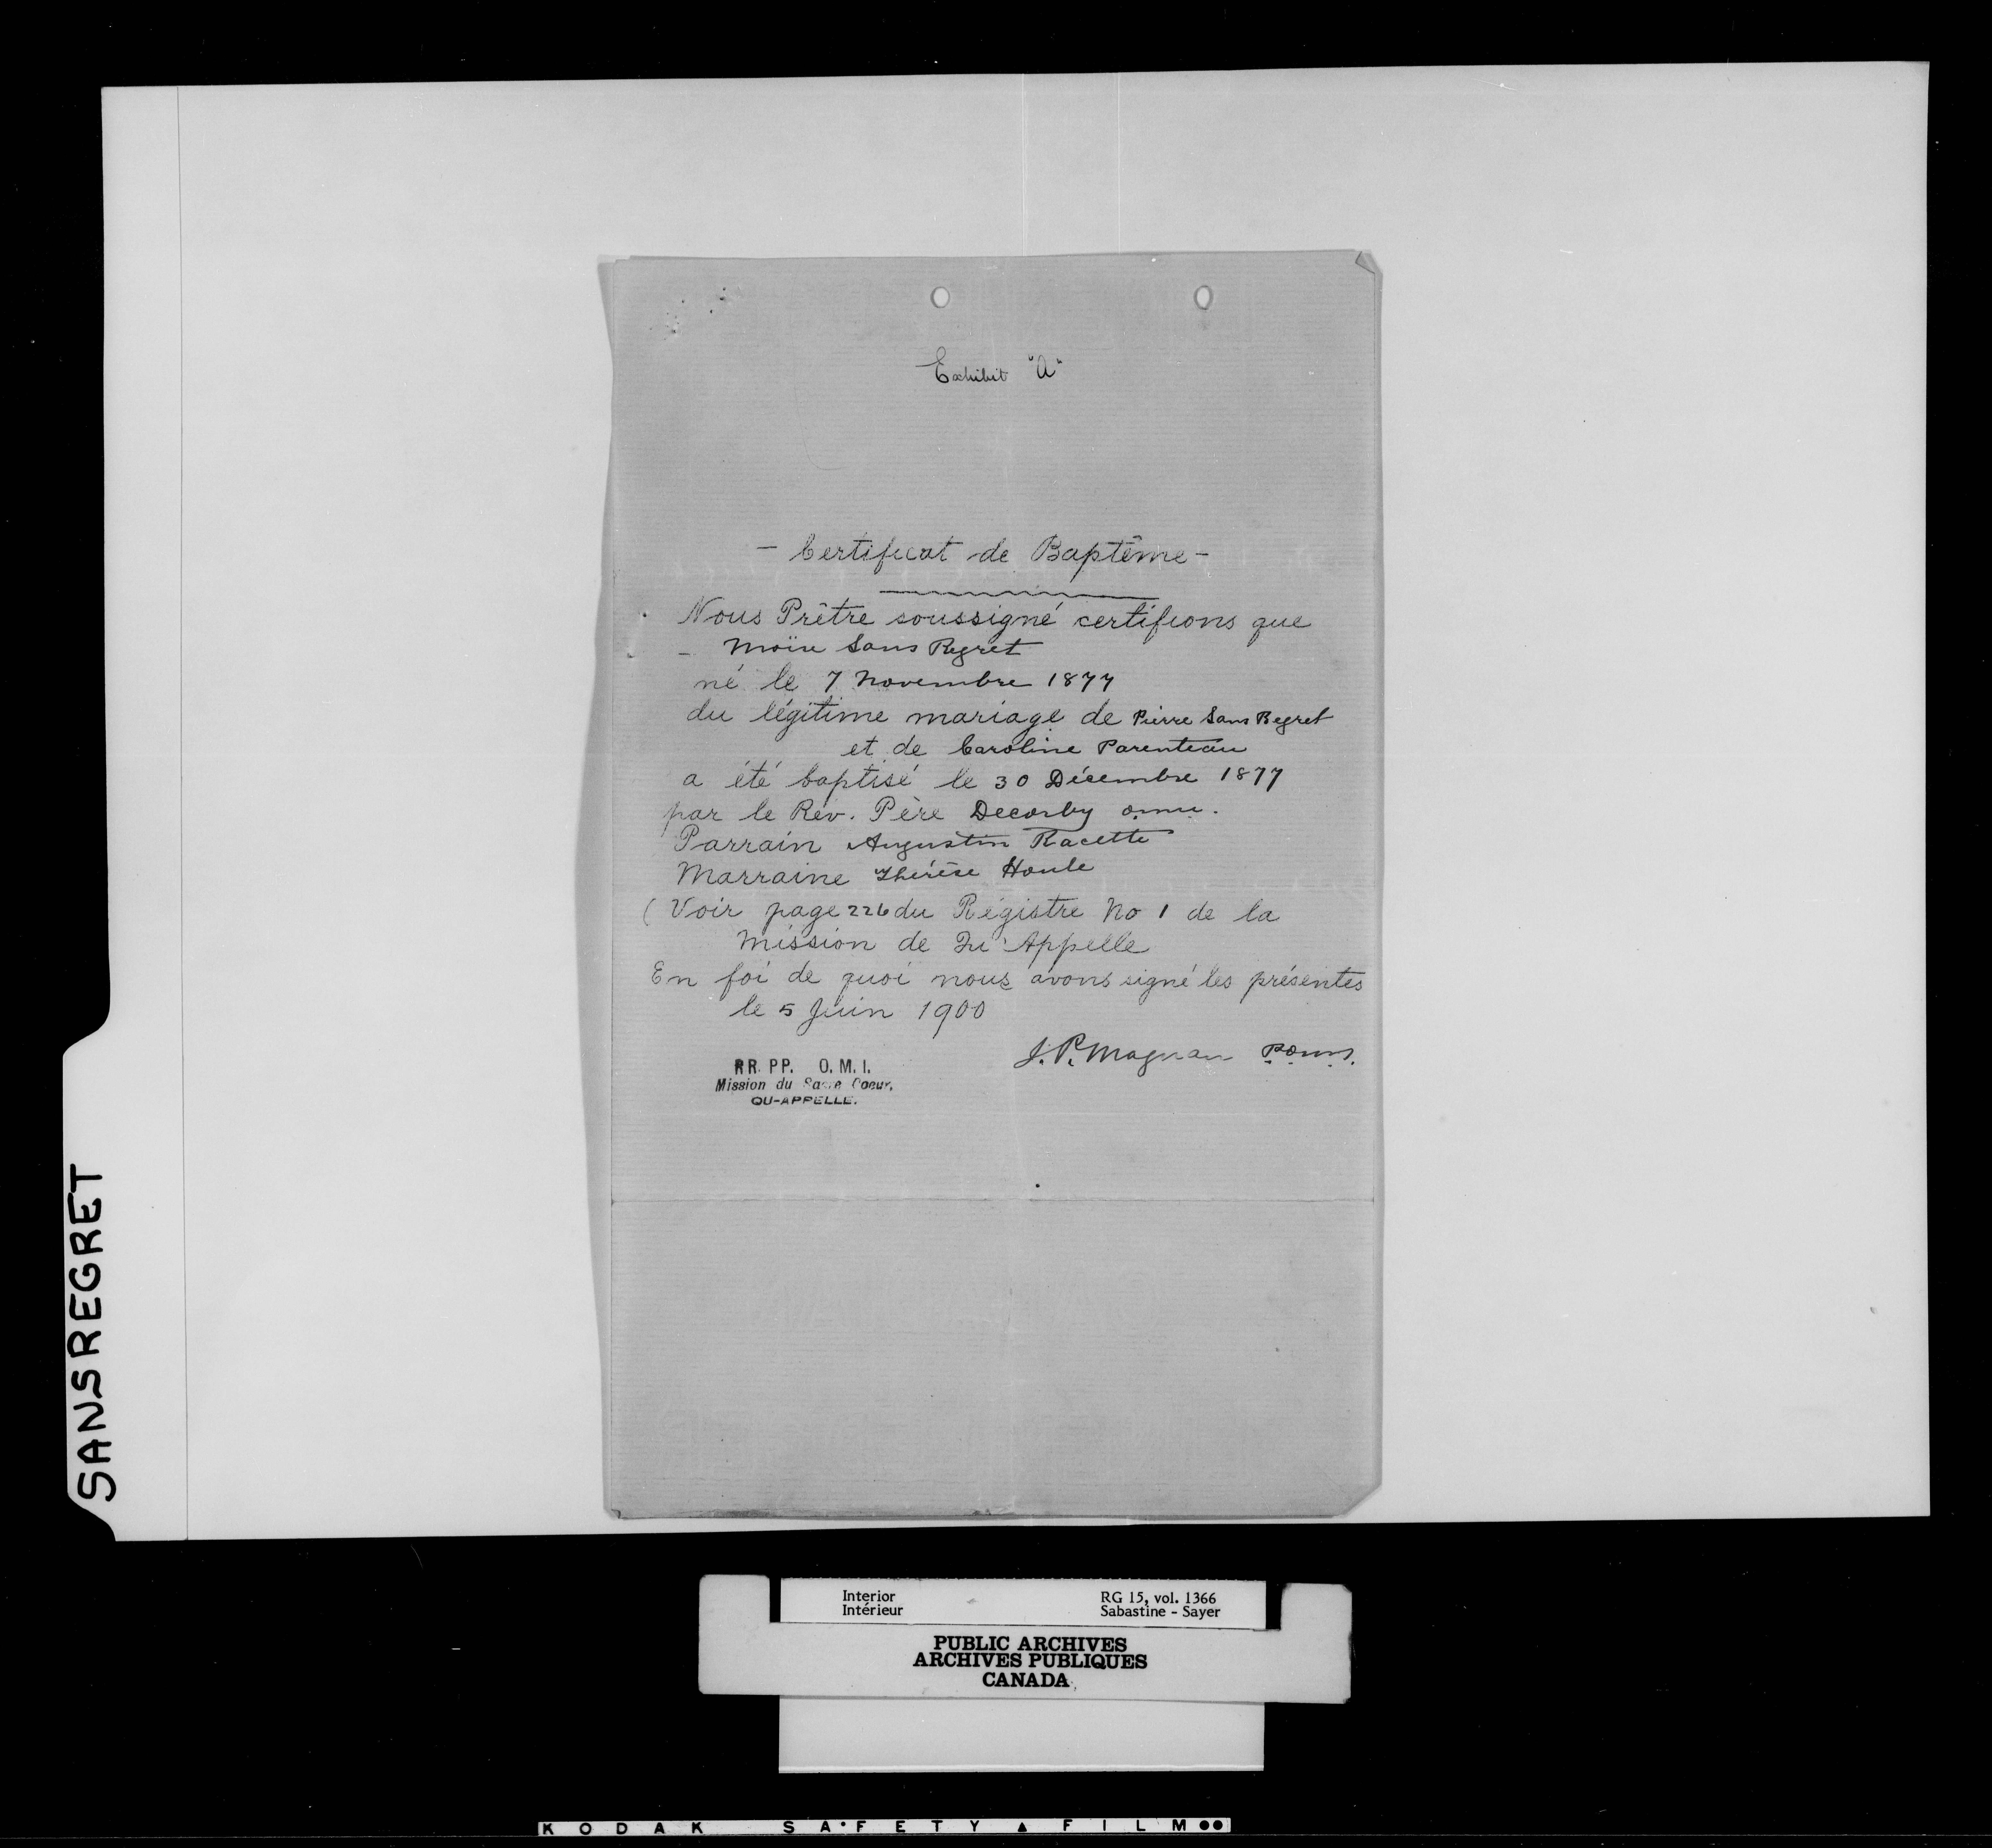 Exhibit "A"
- Certificat de Baptême -
Nous Prêtre soussigné certifions que
- Moïse Sans Regret
né le 7 Novembre 1877
du légitime mariage de Pierre Sans Regret
et de Caroline Parenteau
a été baptisé le 30 Décembre 1877
par le Rév. Père Decorby o.m.i.
Parrain Augustin Racette
Marraine Thérèse Houle
( Voir page 226 du Régistre No 1 de la
Mission de Qu'Appelle
En foi de quoi nous avons signé les présentes
le 5 Juin 1900
J. P. Magnan P.O.M.I.
RR. PP. O. M. I.
Mission du Sacré Coeur,
QU-APPELLE.
SANSREGRET
Interior RG 15, vol. 1366
Intérieur Sabastine - Sayer
PUBLIC ARCHIVES
ARCHIVES PUBLIQUES
CANADA
KODAK SAFETY ▲ FILM ●●